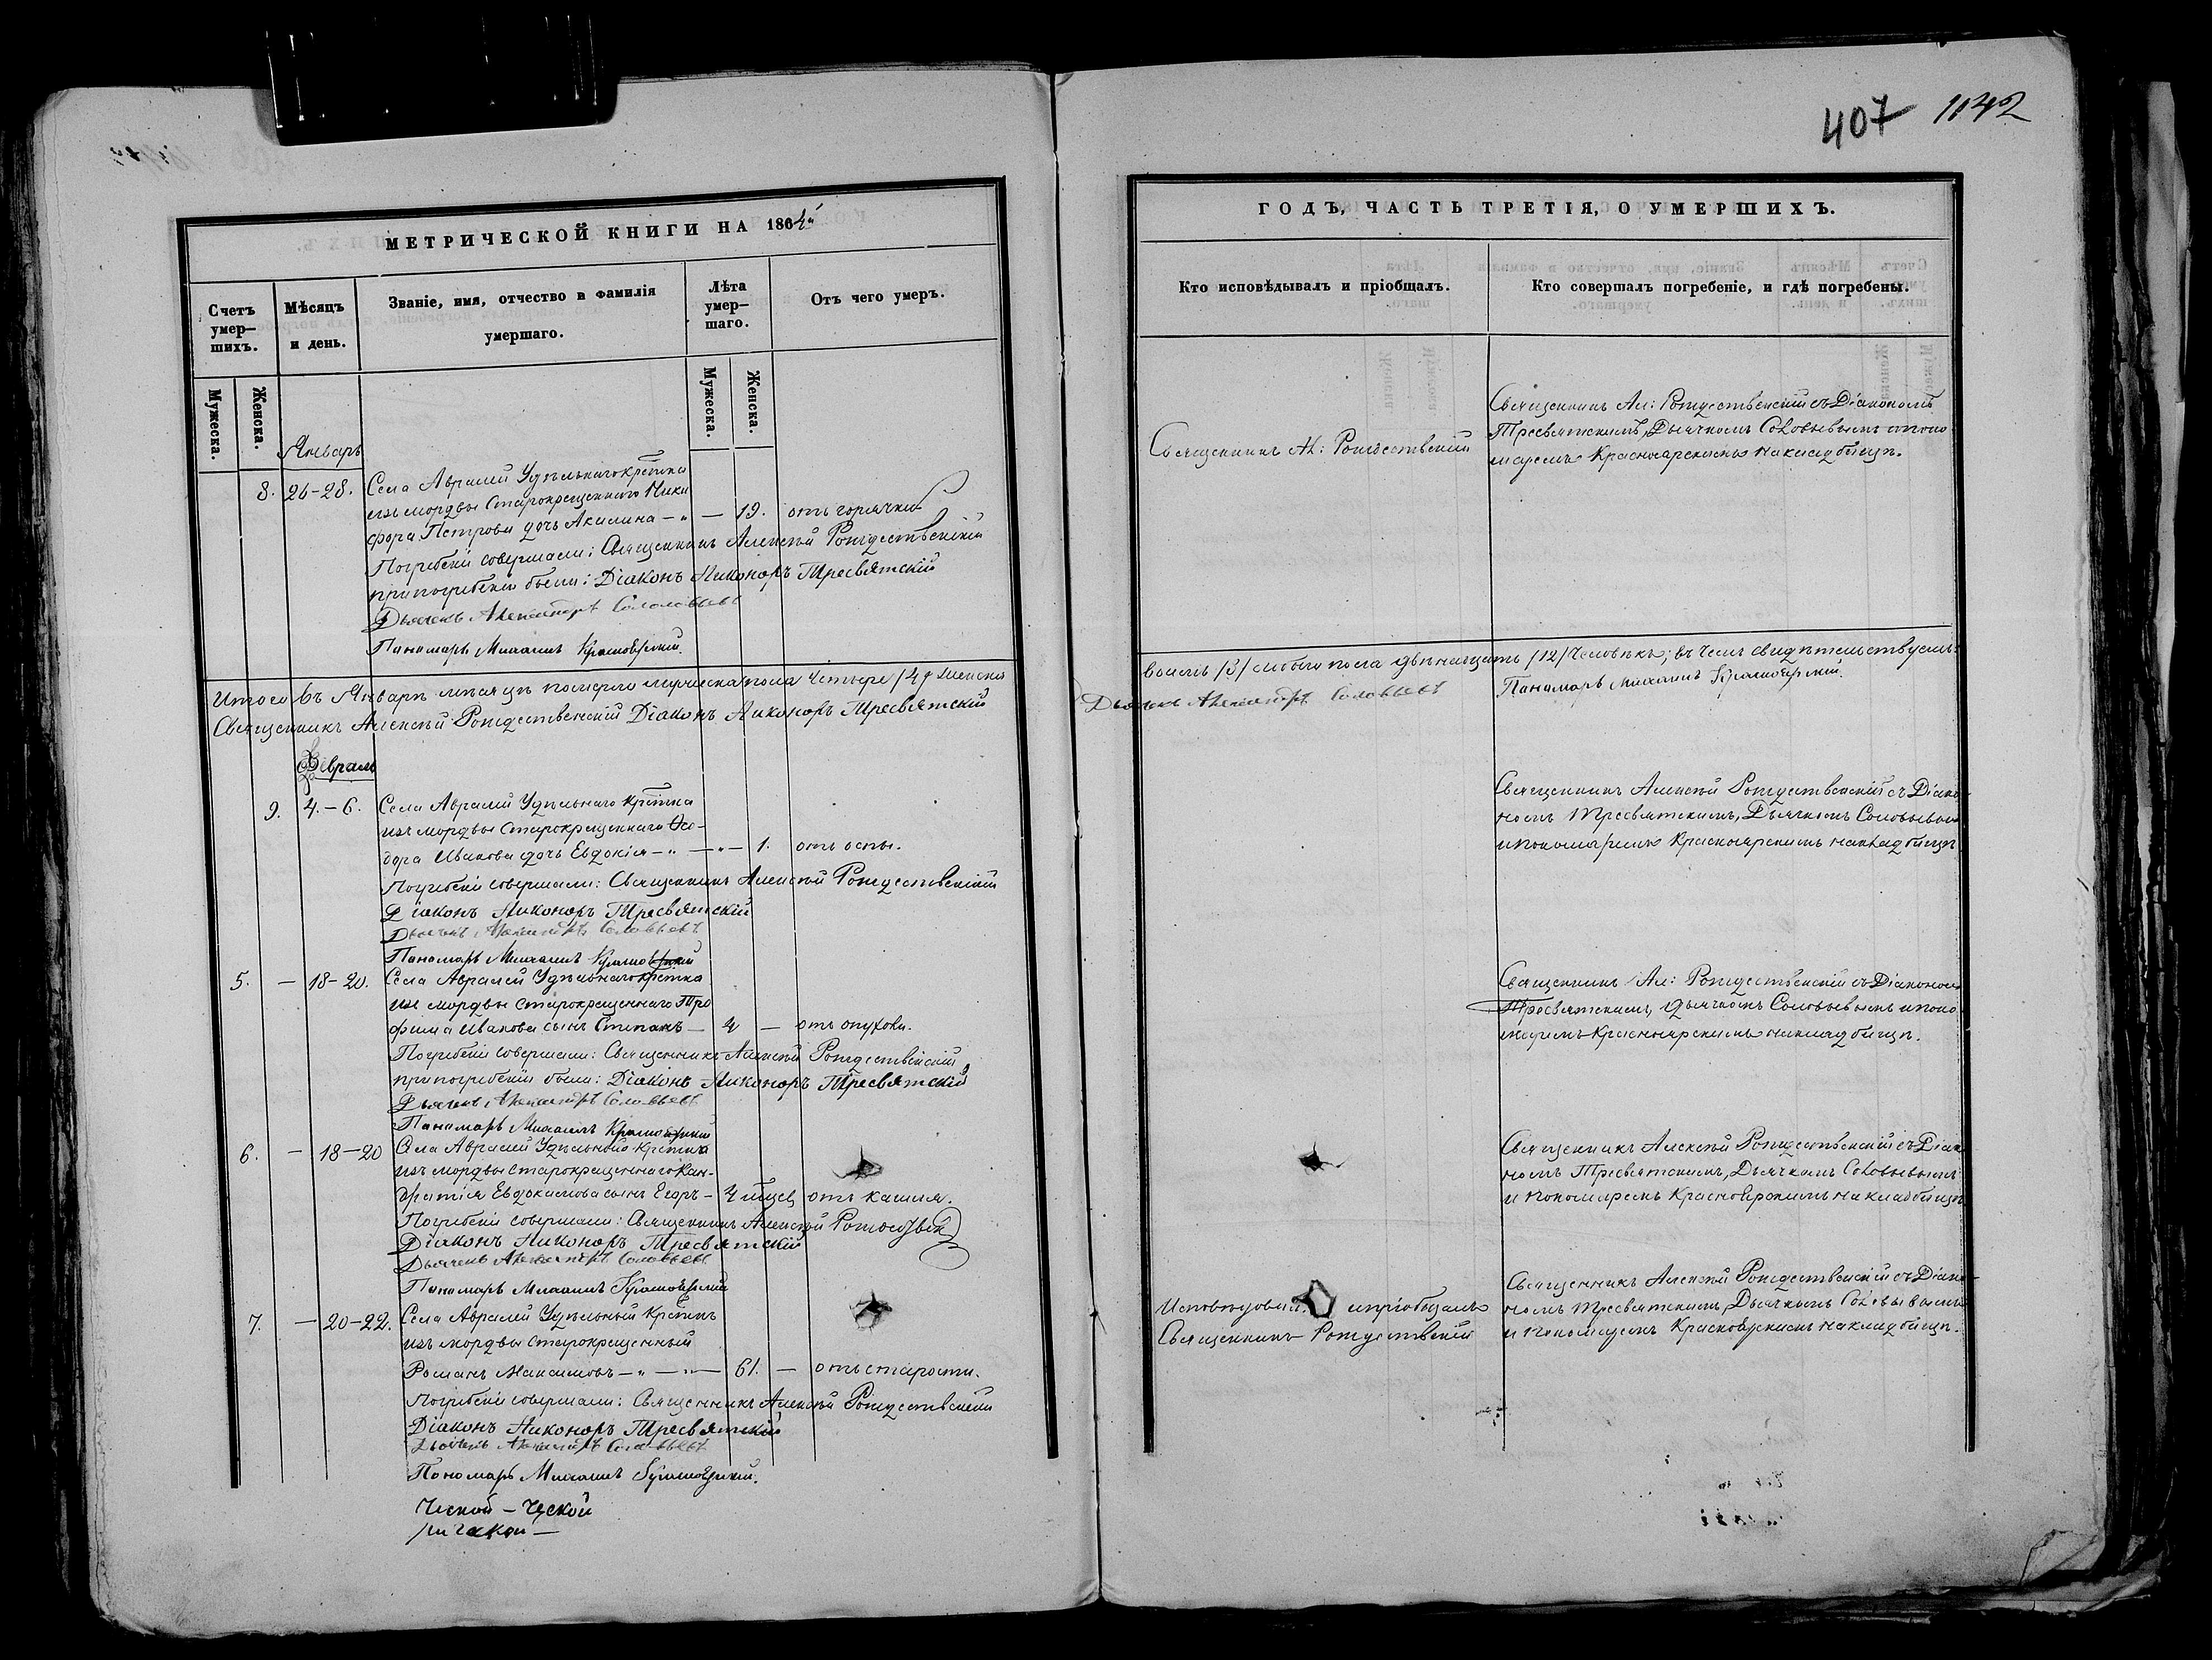 407 1142
МЕТРИЧЕСКОЙ КНИГИ НА 1864й
Счетъ умер-шихъ.
Мѣсяцъ и день.
Званіе, имя, отчество и фамилія умершаго.
Лѣта умер-шаго.
Отъ чего умеръ.
Мужеска.
Женска.
Мужеска.
Женска.
Январь
8. 26-28. Села Авралей Удѣльнаго крестьна
изъ мордвы старокрещеннаго Ники
фора Петрова дочь Акилина — 19. отъ горячки
Погребеніе совершали: Священникъ Алексѣй Рождественскій
при погребеніи были: Діаконъ Никоноръ Тресвятскій
Дьячекъ Александръ Соловьевъ
Панамарь Михаилъ Красноярскій.
Итого въ Январѣ мѣсяцѣ померло мужеска пола четыре /4/ женска
Священникъ Алексѣй Рождественскій Діаконъ Никоноръ Тресвятскій
Февраль
9. 4.-6. Села Авралей Удѣльнаго крестьна
изъ мордвы старокрещеннаго Ѳео-
дора Иванова дочь Евдокія — 1. отъ оспы.
Погребеніе совершали: Священникъ Алексѣй Рождественскій
Діаконъ Никоноръ Тресвятскій
Дьячекъ Александръ Соловьевъ
Панамарь Михаилъ Красноярскій
5. — 18-20. Села Авралей Удѣльнаго крестьна
изъ мордвы старокрещеннаго Тро
фима Иванова сынъ Степанъ — 4 — отъ опухоли.
Погребеніе совершали: Священникъ Алексѣй Рождественскій
при погребеніи были: Діаконъ Никоноръ Тресвятскій
Дьячекъ Александръ Соловьевъ
Панамарь Михаилъ Красноярскій
6. — 18-20 Села Авралей Удѣльнаго крестьна
изъ мордвы старокрещеннаго Кон-
дратія Евдокимова сынъ Егоръ — отъ кашля.
Погребеніе совершали: Священникъ Алексѣй
Діаконъ Никоноръ Тресвятскій
Дьячекъ Александръ Соловьевъ
Панамарь Михаилъ Красноярскій
7. — 20-22. Села Авралей Удѣльный крестьнъ
изъ мордвы старокрещенный
Романъ Максимовъ — 61. — отъ старости.
Погребеніе совершали: Священникъ Алексѣй Рождественскій
Діаконъ Никоноръ Тресвятскій
Дьячекъ Александръ Соловьевъ
Пономарь Михаилъ Красноярскій.
ческой - ческой
ГОДЪ, ЧАСТЬ ТРЕТІЯ, О УМЕРШИХЪ.
Кто исповѣдывалъ и пріобщалъ.
Кто совершалъ погребеніе, и гдѣ погребены.
Священникъ Ал: Рождественскій
Священникъ Ал: Рождественскій съ Діакономъ
Тресвятскимъ, Дьячкомъ Соловьевымъ и поно
маремъ Красноярскимъ на кладбищѣ.
восемь /8/ обоего пола двѣнадцать /12/ человѣкъ; въ чемъ свидѣтельствуемъ:
Дьячекъ Александръ Соловьевъ
Панамарь Михаилъ Красноярскій.
Священникъ Алексѣй Рождественскій съ Діако-
номъ Тресвятскимъ, Дьячкомъ Соловьевым
и пономаремъ Красноярскимъ на кладбищѣ
Священникъ Ал: Рождественскій съ Діаконом
Тресвятскимъ, Дьячкомъ Соловьевымъ и поно
маремъ Красноярскимъ на кладбищѣ.
Священникъ Алексѣй Рождественскій съ Діако
номъ Тресвятскимъ, Дьячкомъ Соловьевымъ
и пономаремъ Красноярскимъ на кладбищѣ
Исповѣдовалъ и пріобщалъ
Священникъ Рождественскій
Священникъ Алексѣй Рождественскій съ Діако-
номъ Тресвятскимъ, Дьячкомъ Соловьевымъ
и пономаремъ Красноярскимъ на кладбищѣ.